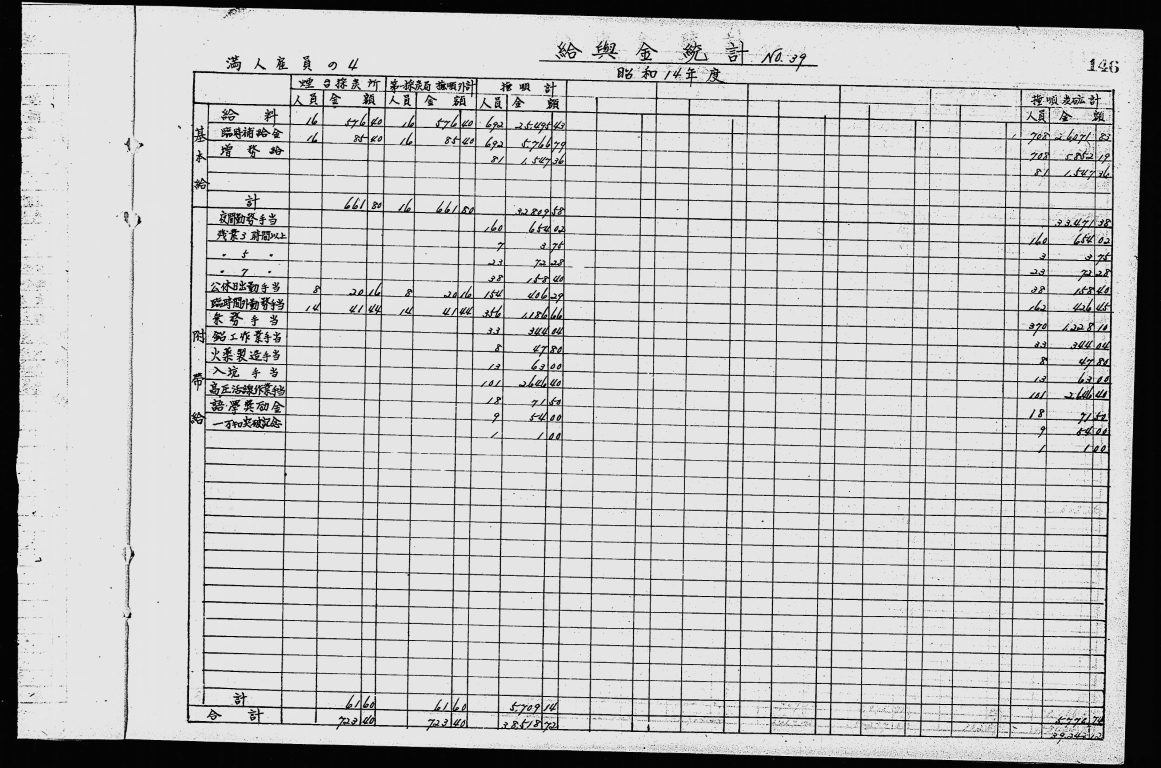 給與金統計 NO.39
146
満人雇員の4
昭和14年度
煙台採炭所 第一採炭局撫順外計 撫順計 撫順炭砿計
人員 金額 人員 金額 人員 金額 人員 金額
基本給
給料 16 576 40 16 576 40 692 25495 43 708 26071 83
臨時補給金 16 85 40 16 85 40 692 5766 79 708 5852 19
増務給 81 1,547 36 81 1,547 36
計 661 80 16 661 80 32809 58 33,471 38
附帯給
夜間勤務手当 160 654 02 160 654 02
残業3時間以上 7 3 75 3 3 75
〃 5 〃 23 72 28 23 72 28
〃 7 〃 38 158 40 38 158 40
公休日出勤手当 8 20 16 8 20 16 154 406 29 162 426 45
臨時時間外勤務手当 14 41 44 14 41 44 356 1,186 66 370 1,228 10
乗務手当 33 344 04 33 344 04
鉛工作業手当 8 47 80 8 47 80
火薬製造手当 13 63 00 13 63 00
入坑手当 101 2,646 40 101 2,646 40
高圧活線作業手当 18 71 50 18 71 50
語學奨励金 9 54 00 9 54 00
一万キロ突破記念 1 1 00 1 1 00
計 61 60 61 60 5,709 14 5,770 74
合計 723 40 723 40 38518 72 39,242 12